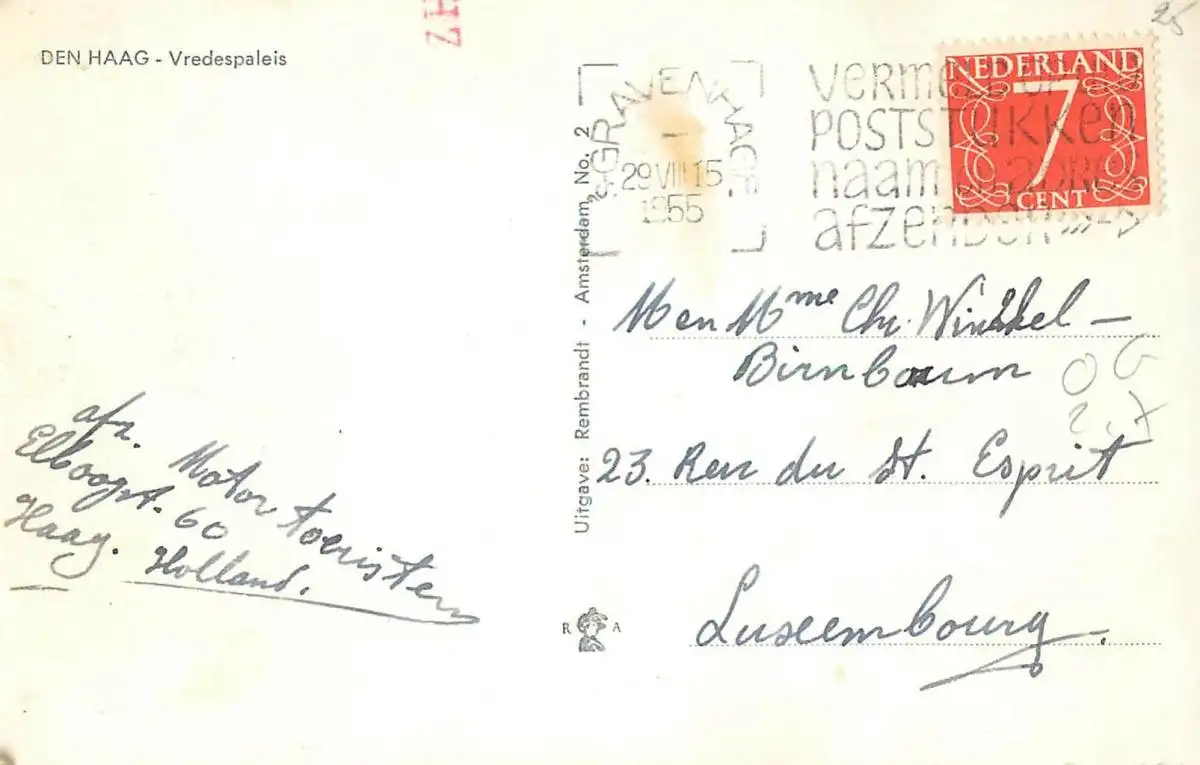 ZH
25
DEN HAAG - Vredespaleis
'S-GRAVENHAGE
29 VIII 15
1955
VERMELD OP
POSTSTUKKEN
naam
afzender
NEDERLAND
7
CENT
Uitgave: Rembrandt - Amsterdam, No. 2
M en Mme Chr. Winkkel -
Birnbaum
23. Reu du St. Esprit
Luxembourg.
afz. Motor toeristen
Elboogst. 60
Haag. Holland.
R A